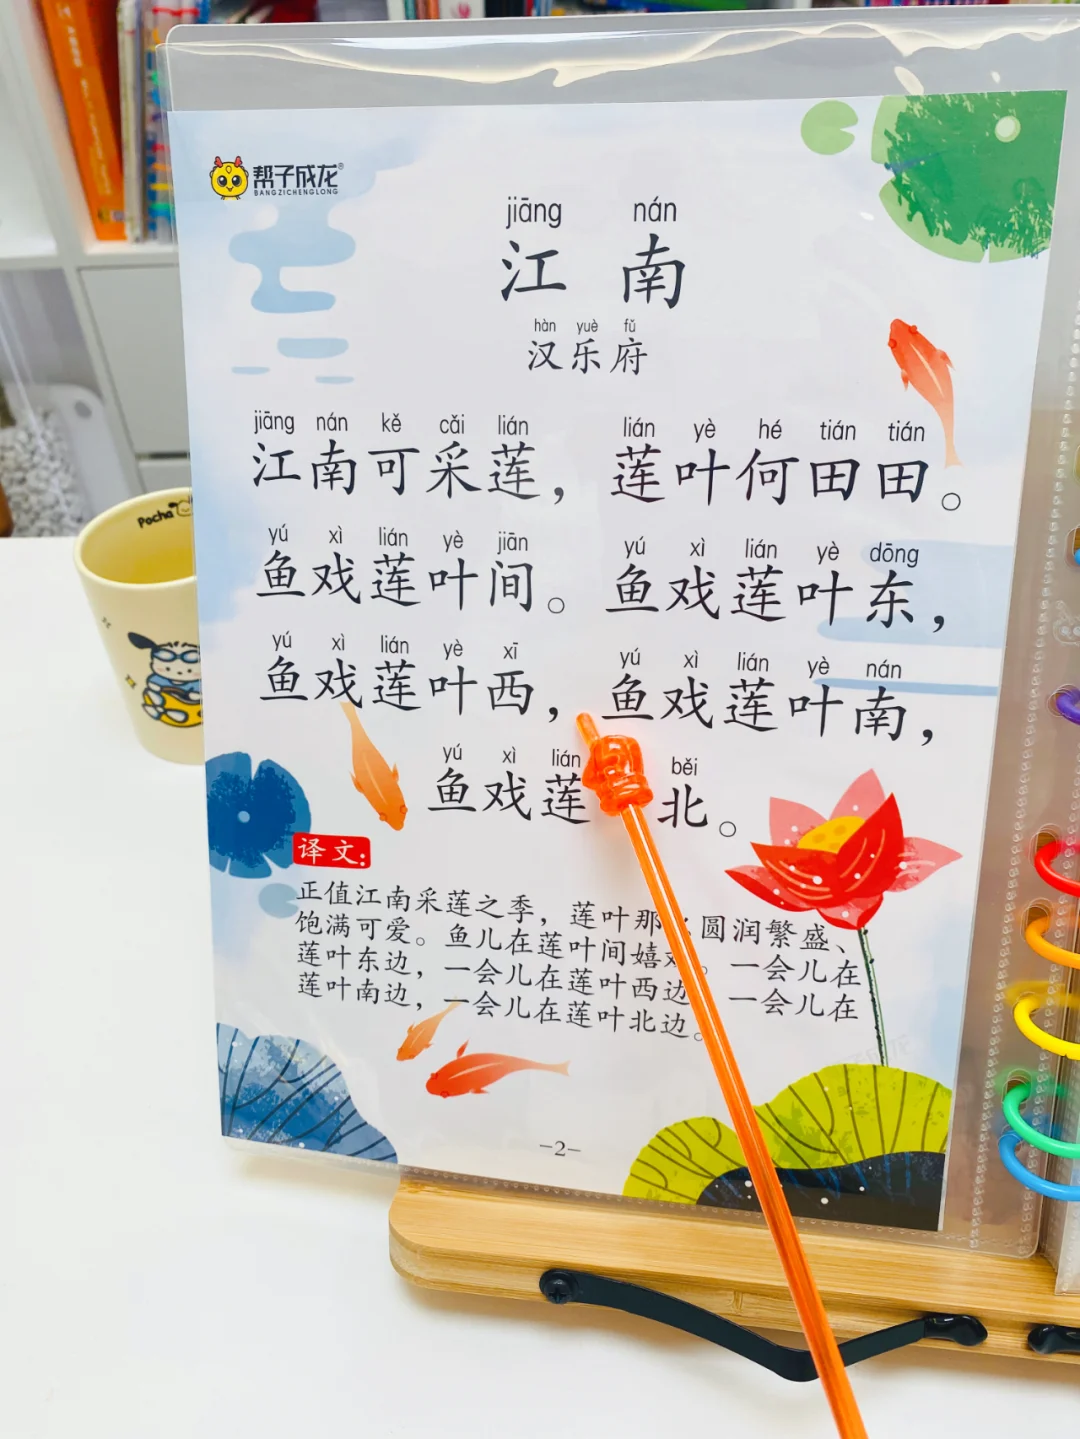 帮子成龙®
BANGZICHENGLONG
jiāng nán
江南
hàn yuè fǔ
汉乐府
jiāng nán kě cǎi lián lián yè hé tián tián
江南可采莲，莲叶何田田。
yú xì lián yè jiān yú xì lián yè dōng
鱼戏莲叶间。鱼戏莲叶东，
yú xì lián yè xī yú xì lián yè nán
鱼戏莲叶西，鱼戏莲叶南，
yú xì lián běi
鱼戏莲 北。
译文：
正值江南采莲之季，莲叶那 圆润繁盛、
饱满可爱。鱼儿在莲叶间嬉 。一会儿在
莲叶东边，一会儿在莲叶西边 一会儿在
莲叶南边，一会儿在莲叶北边。
-2-
Pocha